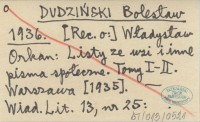 DUDZIŃSKI Bolesław
1936. [Rec. o:] Władysław
Orkan: Listy ze wsi i inne
pisma społeczne. Tomy I-II.
Warszawa [1935].
Wiad. Lit. 13, nr 25: